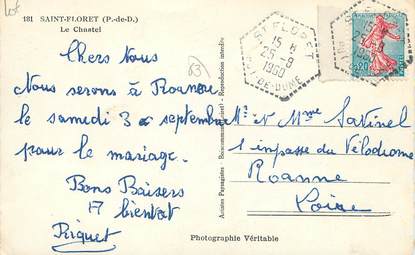 181 SAINT-FLORET (P.-de-D.)
Le Chastel
Chers Vous
Nous serons à Roanne
le samedi 3 septembre
pour le mariage.
Bons Baisers
A bientôt
Riquet
63
ST FLORET
15 H
25-8
1960
PUY-DE-DOME
0,20
M. et Mme Sativel
1 impasse du Vélodrome
Roanne
Loire
Photographie Véritable
Reproduction interdite